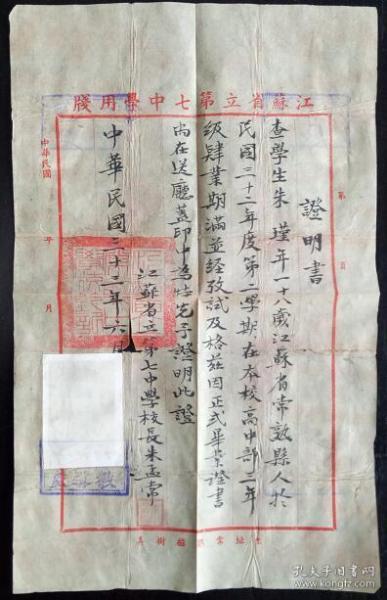 江蘇省立第七中學用牋
第 頁
證明書
查學生朱瑾年一十八歲江蘇省常熟縣人於
民國三十二年度第二學期在本校高中部三年
級肄業期滿並經攷試及格茲因正式畢業證書
尚在送廳蓋印中為特先予證明此證
江蘇省立第七中學校長朱孟常
中華民國三十三年六月
中華民國 年 月
孔夫子旧书网